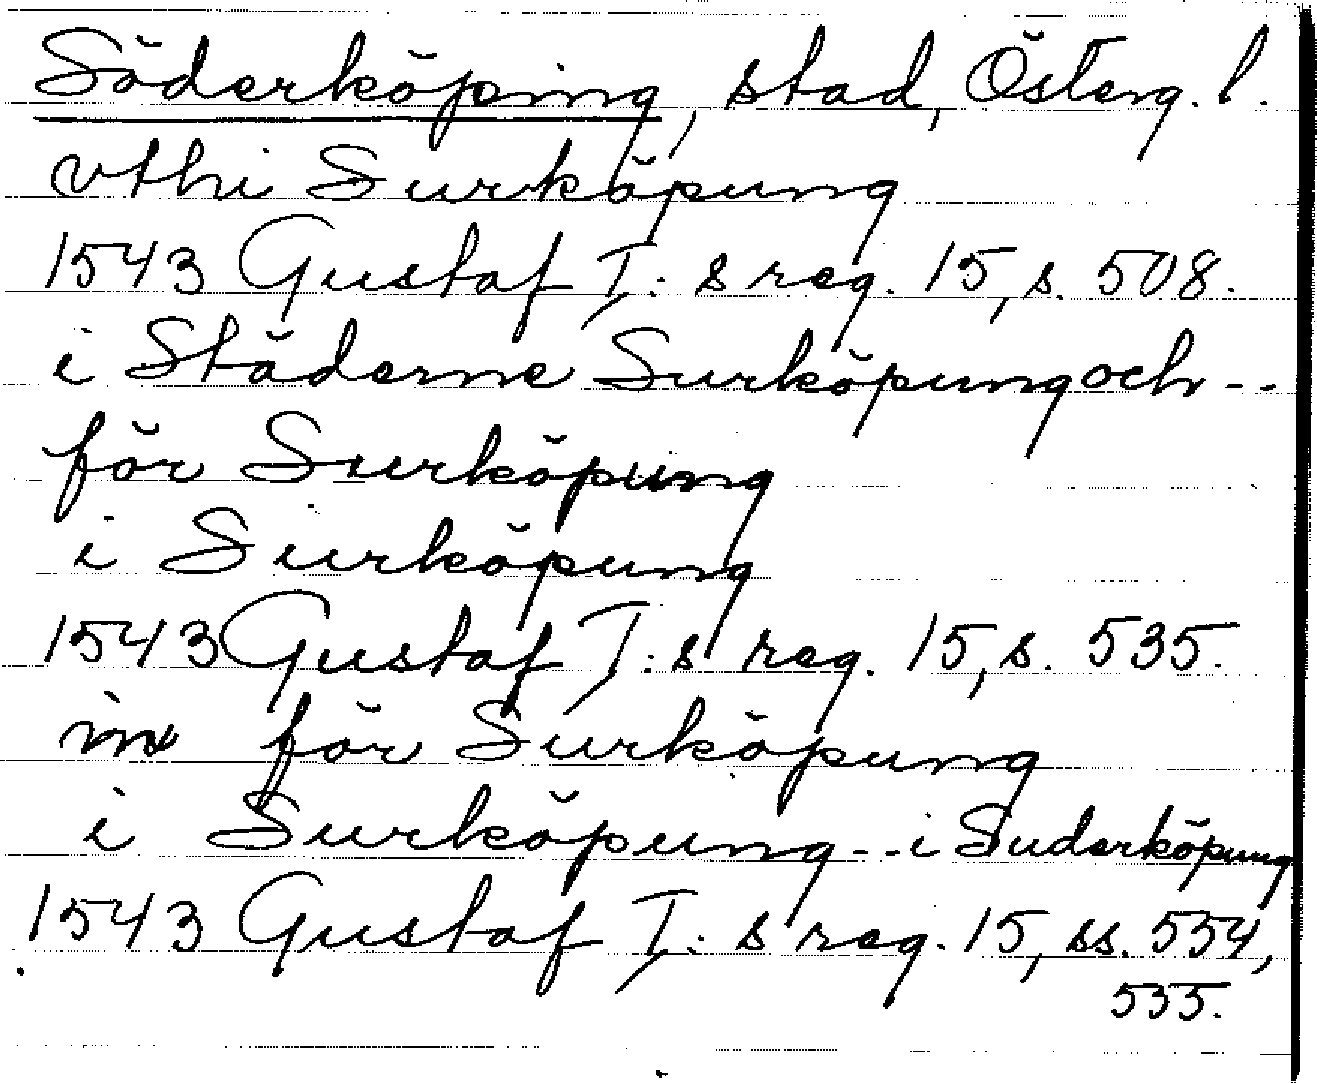 Söderköping, stad, Österg. l.
vthi Surköpung
1543 Gustaf I:s reg. 15, s. 508.
i Städerne Surköpung och --
för Surköpung
i Surköpung
1543 Gustaf I:s reg. 15, s. 535.
inx för Surköpung
i Surköpung -- i Suderköpung
1543 Gustaf I:s reg. 15, ss. 534,
535.